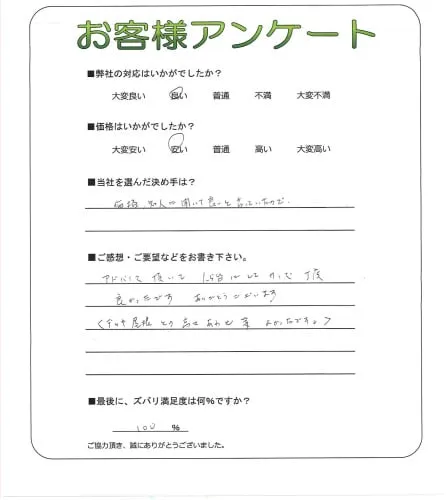 お客様アンケート
■弊社の対応はいかがでしたか?
大変良い 良い 普通 不満 大変不満
■価格はいかがでしたか?
大変安い 安い 普通 高い 大変高い
■当社を選んだ決め手は?
価格、知人に聞いて良いと言っていたので.
■ご感想・ご要望などをお書き下さい。
アドバイス 頂いて 1.5台に して
良かったです ありがとうございます
屋根 との 高さ あわせ よかったです。>
■最後に、ズバリ満足度は何%ですか?
100 %
ご協力頂き、誠にありがとうございました。